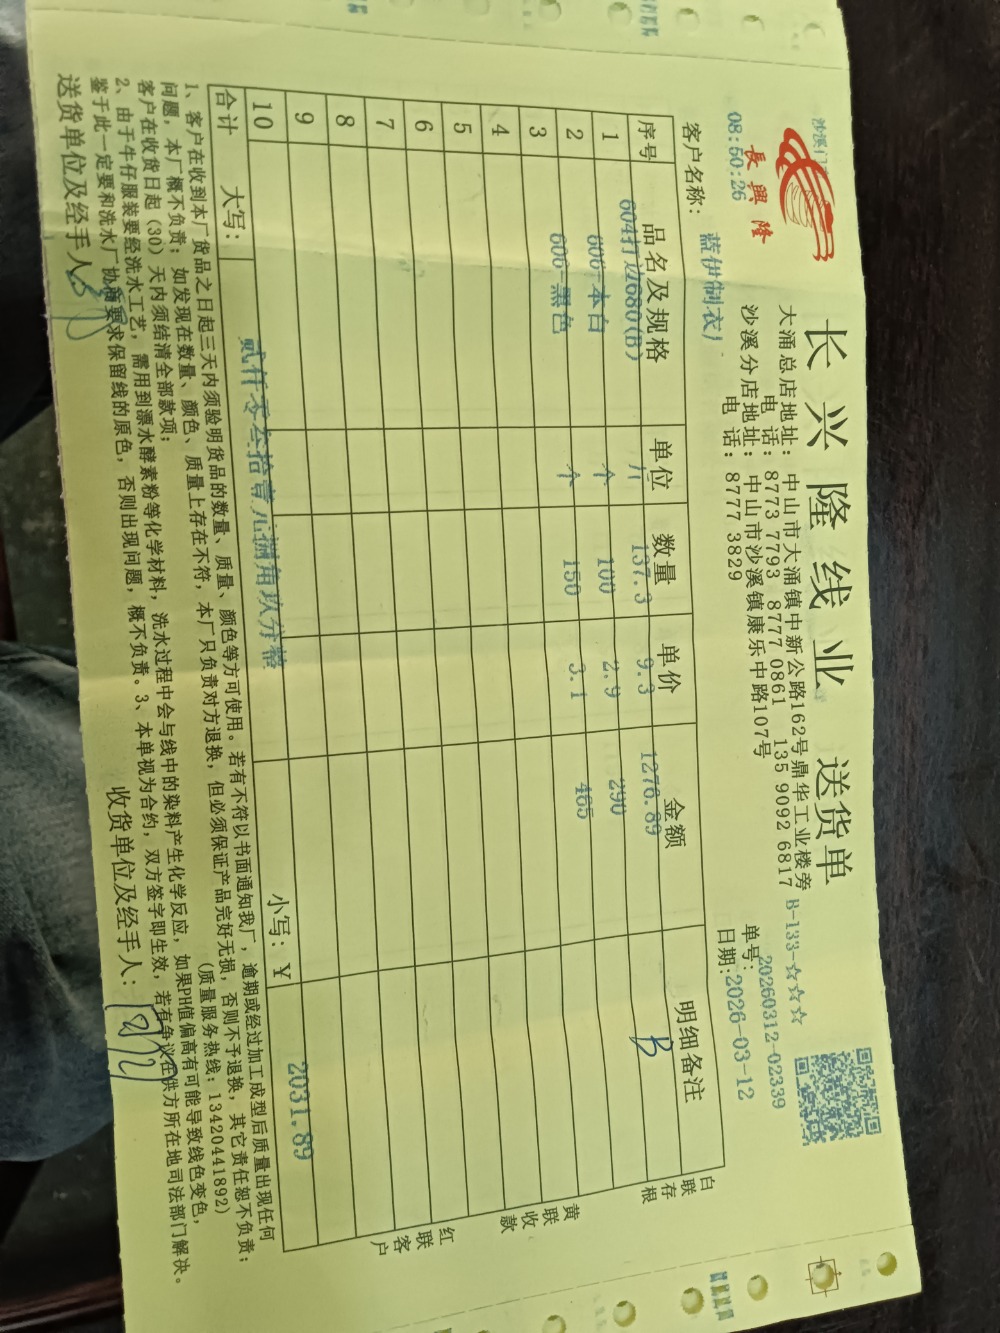 長興隆
沙溪门
08:50:26
长兴隆线业 送货单
大涌总店地址: 中山市大涌镇中新公路162号鼎华工业楼旁 B-133-☆☆☆
电 话: 8773 7793 8777 0861 135 9092 6817
沙溪分店地址: 中山市沙溪镇康乐中路107号
电 话: 8777 3829
单号: 20260312-02339
日期: 2026-03-12
客户名称: 蓝伊制衣厂
序号 品名及规格 单位 数量 单价 金额 明细备注
604打边680(B) 斤 137.3 9.3 1276.89 B
1 606-本白 个 100 2.9 290
2 606-黑色 个 150 3.1 465
3
4
5
6
7
8
9
10
合计 大写: 贰仟零叁拾壹元捌角玖分整 小写: ¥ 2031.89
白联存根
黄联收款
红联客户
1、客户在收到本厂货品之日起三天内须验明货品的数量、质量、颜色等方可使用。若有不符以书面通知我厂,逾期或经过加工成型后质量出现任何
问题,本厂概不负责;如发现在数量、颜色、质量上存在不符,本厂只负责对方退换,但必须保证产品完好无损,否则不予退换,其它责任恕不负责;
客户在收货日起(30)天内须结清全部款项; (质量服务热线:13420441892)
2、由于牛仔服装要经洗水工艺,需用到漂水酵素粉等化学材料,洗水过程中会与线中的染料产生化学反应,如果PH值偏高有可能导致线色变色,
鉴于此一定要和洗水厂协商要求保留线的原色,否则出现问题,概不负责。3、本单视为合约,双方签字即生效,若有争议在供方所在地司法部门解决。
送货单位及经手人: 收货单位及经手人: